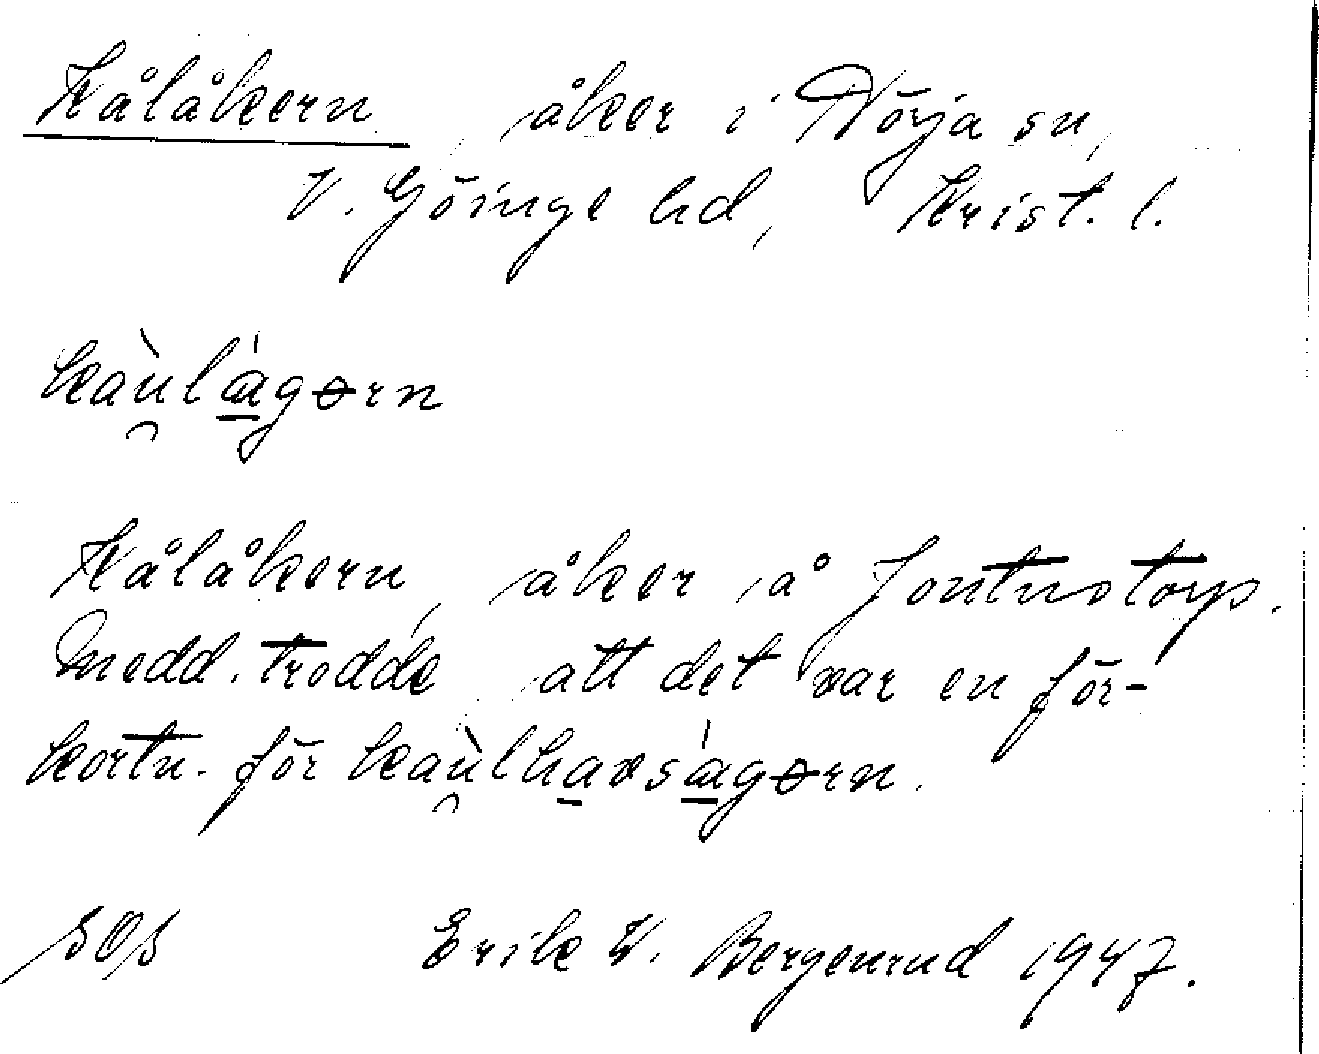 Kålåkern, åker i Nörja sn,
V. Göinge hd, Krist. l.
kaù̯lág
ərn
Kålåkern, åker på Jontustorp.
Medd. trodde att det var en för-
kortn. för
SOS Erik W. Bergenrud 1947.